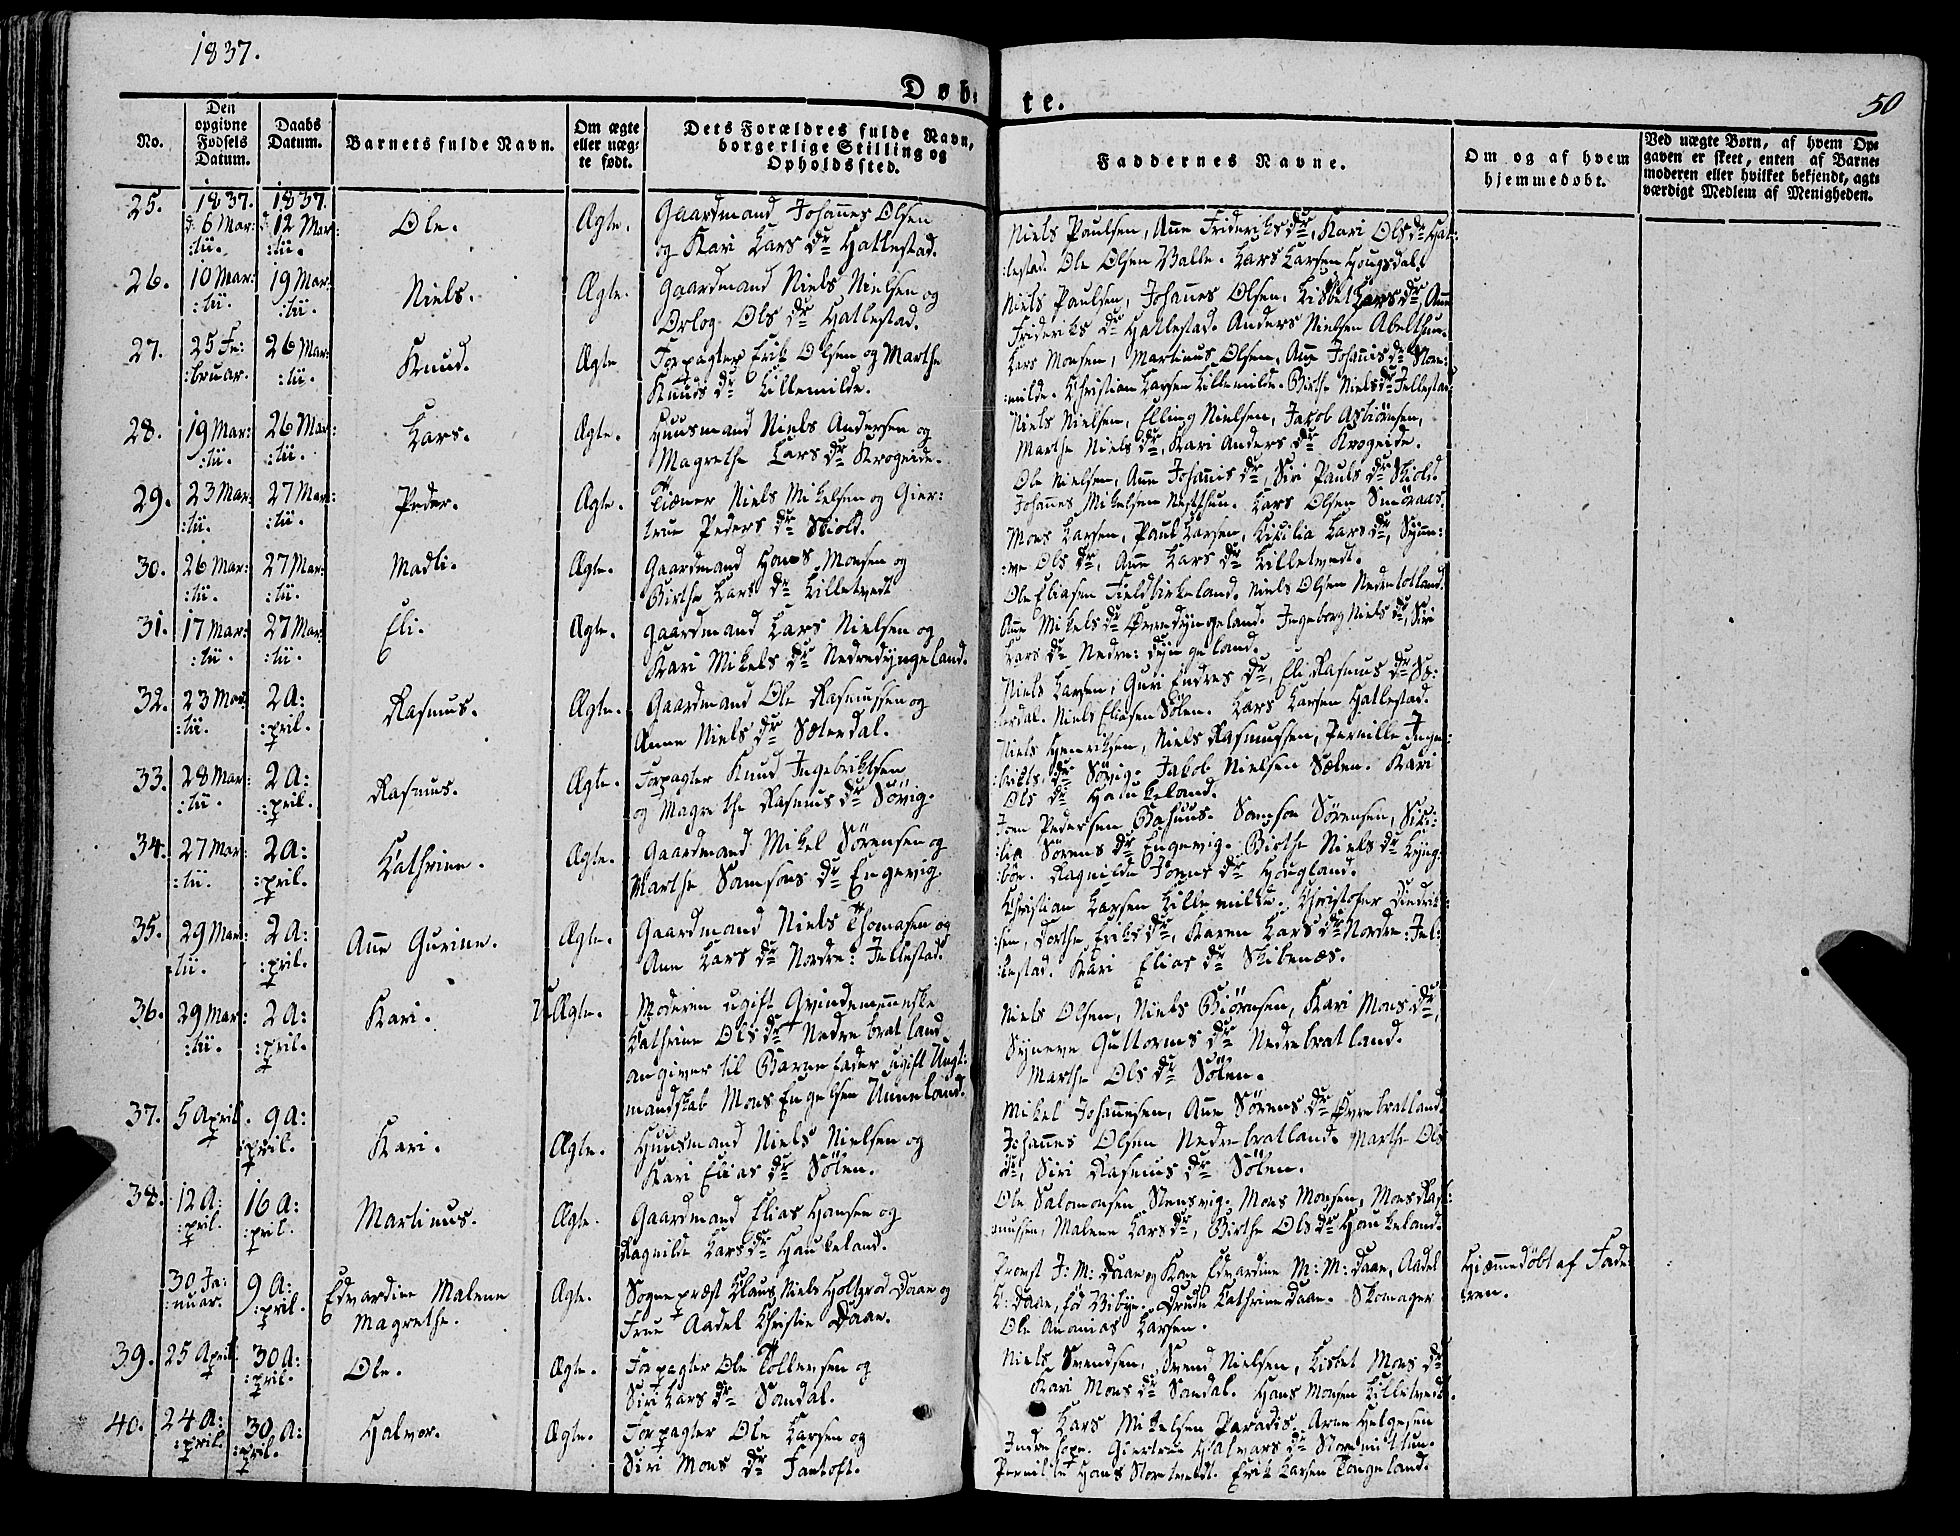 1837.
50
Døb-
te.
No.
Den
opgivne
Fødsels
Datum.
Daabs
Datum.
Barnets fulde Navn.
Om ægte
eller uæg-
te født.
Dets Forældres fulde Navn,
borgerlige Stilling og
Opholdssted.
Faddernes Navne.
Om og af hvem
hjemmedøbt.
Ved uægte Børn, af hvem Op-
gaven er skeet, enten af Barne-
moderen eller hvilket bekjendt, agt-
værdigt Medlem af Menigheden.
25.
1837.
d: 6 Mar:
:tii.
1837.
d: 12 Mar:
:tii.
Ole.
Ægte.
Gaardmand Johannes Olsen
og Kari Lars dr Hatlestad.
Niels Paulsen, Anne Friderichs dr, Kari Ols dr Hat:
:lestad. Ole Olsen Valle. Lars Larsen Hougsdal.
26.
10 Mar:
:tii.
19 Mar:
:tii.
Niels.
Ægte.
Gaardmand Niels Nielsen og
Orlog Ols dr Hatlestad.
Niels Paulsen, Johannes Olsen, Lisbet Lars dr, Anne
Friderichs dr Hatlestad. Anders Nielsen Abelthun.
27.
25 Fe:
:bruar.
26 Mar:
:tii.
Knud.
Ægte
Forpagter Erik Olsen og Marthe
Knuds dr Lillemilde.
Lars Monsen, Martinus Olsen, Anne Johannis dr Store:
:milde. Christian Larsen Lillemilde. Birthe Niels dr Jellestad
28.
19 Mar:
:tii.
26 Mar:
:tii.
Lars.
Ægte.
Huusmand Niels Andersen og
Magrethe Lars dr Krogeide.
Niels Nielsen, Elling Nielsen, Jakob Asbiörnsen,
Marthe Niels dr, Kari Anders dr Krogeide.
29.
23 Mar:
:tii.
27 Mar:
:tii.
Peder.
Ægte.
Tiener Niels Mikelsen og Gier:
true Peders dr Skiold.
Ole Nielsen, Anne Johannis dr, Siri Pauls dr Skiold.
Johannes Mikelsen Nestthun. Lars Olsen Smöraas.
30.
26 Mar:
:tii.
27 Mar:
:tii.
Madli.
Ægte.
Gaardmand Hans Monsen og
Birthe Lars dr Lilletvedt
Mons Larsen, Paul Larsen, Cicilia Lars dr, Synne:
:ve Ols dr, Anne Lars dr Lilletvedt.
31.
17 Mar:
:tii.
27 Mar:
:tii.
Eli.
Ægte.
Gaardmand Lars Nielsen og
Kari Mikels dr Nedredyngeland.
Ole Eliasen Fieldbirkeland. Niels Olsen Nedretotland.
Anne Mikels dr Øvredyngeland. Ingeborg Niels dr, Siri
Lars dr Nedre: dyngeland.
32.
23 Mar:
:tii.
2 A:
:pril.
Rasmus.
Ægte.
Gaardmand Ole Rasmussen og
Anne Niels dr Sæterdal.
Niels Larsen, Guri Endres dr, Eli Rasmus dr Sæ:
:terdal. Niels Eliasen Sölen. Lars Larsen Hatlestad.
33.
28 Mar:
:tii.
2 A:
:pril.
Rasmus.
Ægte.
Forpagter Knud Ingebriktsen
og Magrethe Rasmus dr Sövig.
Niels Henriksen, Niels Rasmussen, Pernille Inge:
:brikts dr Sövig. Jakob Nielsen Sælen. Kari
Ols dr Haukeland.
34.
27 Mar:
:tii.
2 A:
:pril.
Cathrine.
Ægte.
Gaardmand Mikel Sörensen og
Marthe Samsons dr Engevig.
Joen Pedersen Bahuus. Samson Sörensen, Sici:
:lia Sörens dr Engevig. Birthe Niels dr Lyng:
:bör. Ragnilde Joens dr Hougland.
35.
29 Mar:
:tii.
2 A:
:pril.
Anne Gurine.
Ægte.
Gaardmand Niels Thomasen og
Ane Lars dr Nordre: Jellestad.
Christian Larsen Lillemilde. Christofer Diedrik:
:sen, Dorthe Eriks dr, Karen Lars dr Nordre: Jel:
:lestad. Kari Elias dr Skibenæs.
36.
29 Mar:
:tii.
2 A:
:pril.
Kari.
U-Ægte.
Moderen ugift Qvindemenneske
Cathrine Ols dr Nedrebratland
angiver til Barnefader ugift Ungt:
mandskab Mons Engelsen Unneland.
Niels Olsen, Niels Biörnsen, Kari Mons dr,
Synneve Guttorms dr Nedrebratland.
Marthe Ols dr Sölen.
37.
5 April.
9 A:
:pril.
Kari.
Ægte.
Huusmand Niels Nielsen og
Kari Elias dr Sölen.
Mikel Johannesen, Anne Sörens dr Øvrebratland.
Johannes Olsen Nedrebratland. Marthe Ols
dr, Siri Rasmus dr Sölen.
38.
12 A:
:pril.
16 A:
:pril.
Martinus.
Ægte.
Gaardmand Elias Hansen og
Ragnilde Lars dr Haukeland.
Ole Salomonsen Stensvig. Mons Monsen, Mons Ras:
mussen, Malene Lars dr, Birthe Ols dr Haukeland.
30 Ja:
:nuar.
9 A:
:pril.
Edvardine Malene
Magrethe.
Ægte.
Sognepræst Claus Niels Holtzrod Daae og
Frue Aadel Christie Daae.
Provst J: M: Daae og Kone Edvardine M: M: Daae, Aadel
C: Daae, fød Vibye. Drude Cathrine Daae. Skomager
Ole Ananias Larsen.
Hiemmedøbt af Fade
:ren.
39.
25 April.
30 A:
:pril.
Ole.
Ægte.
Forpagter Ole Tollevsen og
Siri Lars dr Sandal.
Niels Svendsen, Svend Nielsen, Lisbet Mons dr
Kari Mons dr Sandal. Hans Monsen Lilletvedt.
40.
24 A:
:pril.
30 A:
:pril.
Halvor.
Ægte.
Forpagter Ole Larsen og
Siri Mons dr Fantoft.
Lars Mikelsen Paradis. Arne Helgesen
Indre sope. Giertrue Halvars dr Storemitthun.
Pernille Hans Storetvedt. Erik Larsen Tongeland.